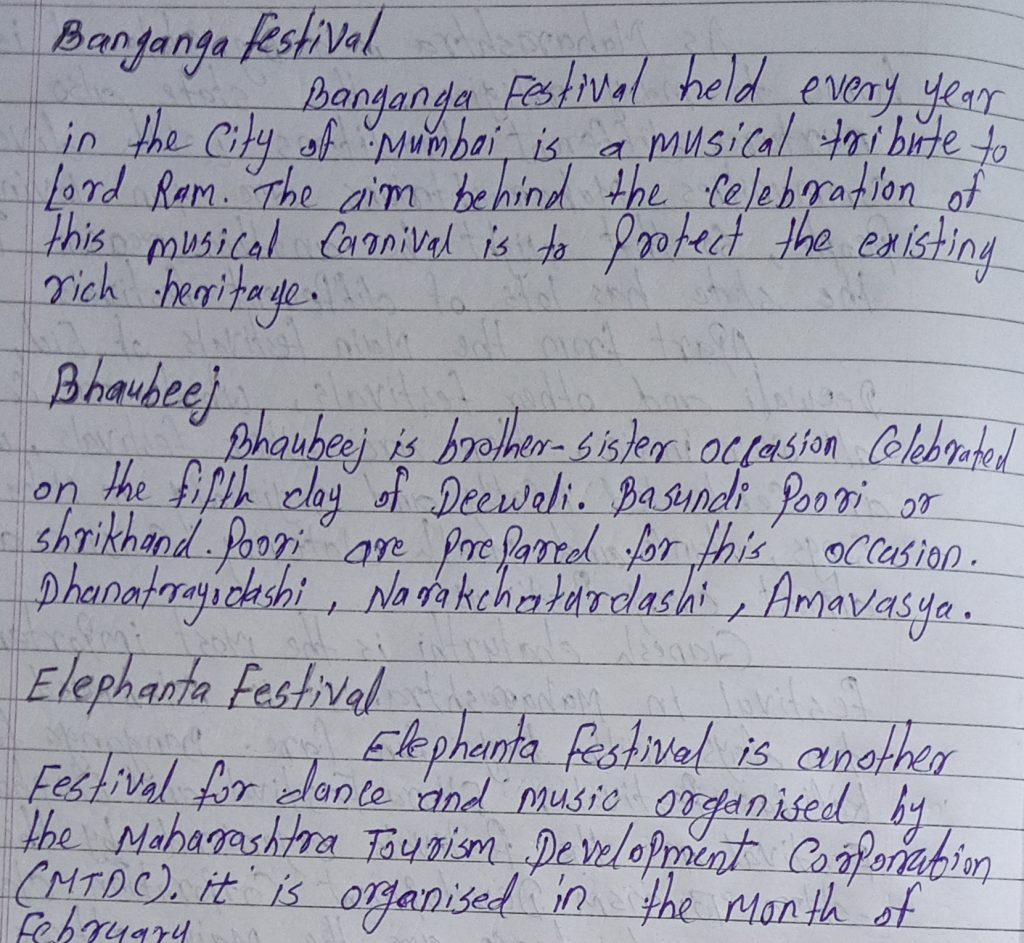 Banganga festival
Banganga Festival held every year
in the City of Mumbai is a musical tribute to
Lord Ram. The aim behind the celebration of
this musical Carnival is to Protect the existing
rich heritage.
Bhaubeej
Bhaubeej is brother-sister occasion Celebrated
on the fifth day of Deewali. Basundi Poori or
shrikhand. Poori are prepared for this occasion.
Dhanatrayodashi, Narakchaturdashi, Amavasya.
Elephanta Festival
Elephanta festival is another
Festival for dance and music organised by
the Maharashtra Tourism Development Corporation
(MTDC). it is organised in the month of
February